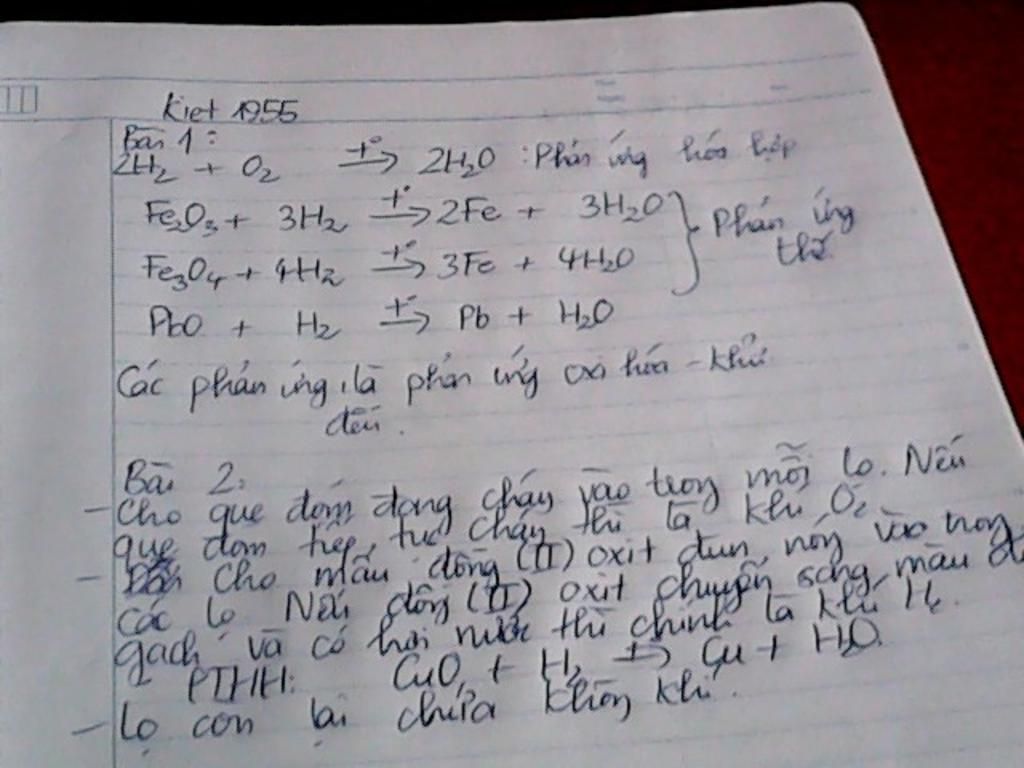 Kiet 1955
Bài 1:
2H₂ + O₂ →t° 2H₂O : Phản ứng hóa hợp
Fe₂O₃ + 3H₂ →t° 2Fe + 3H₂O
Phản ứng thế
Fe₃O₄ + 4H₂ →t° 3Fe + 4H₂O
PbO + H₂ →t° Pb + H₂O
Các phản ứng là phản ứng oxi hóa - khử
đều.
Bài 2:
- Cho que đóm đang cháy vào trong mỗi lọ. Nếu
que đóm tiếp tục cháy thì là khí O₂
- Cho mẫu đồng (II) oxit đun nóng vào trong
các lọ. Nếu đồng (II) oxit chuyển sang màu đỏ
gạch và có hơi nước thì chính là khí H₂.
PTHH: CuO + H₂ →t° Cu + H₂O.
- Lọ còn lại chứa không khí.